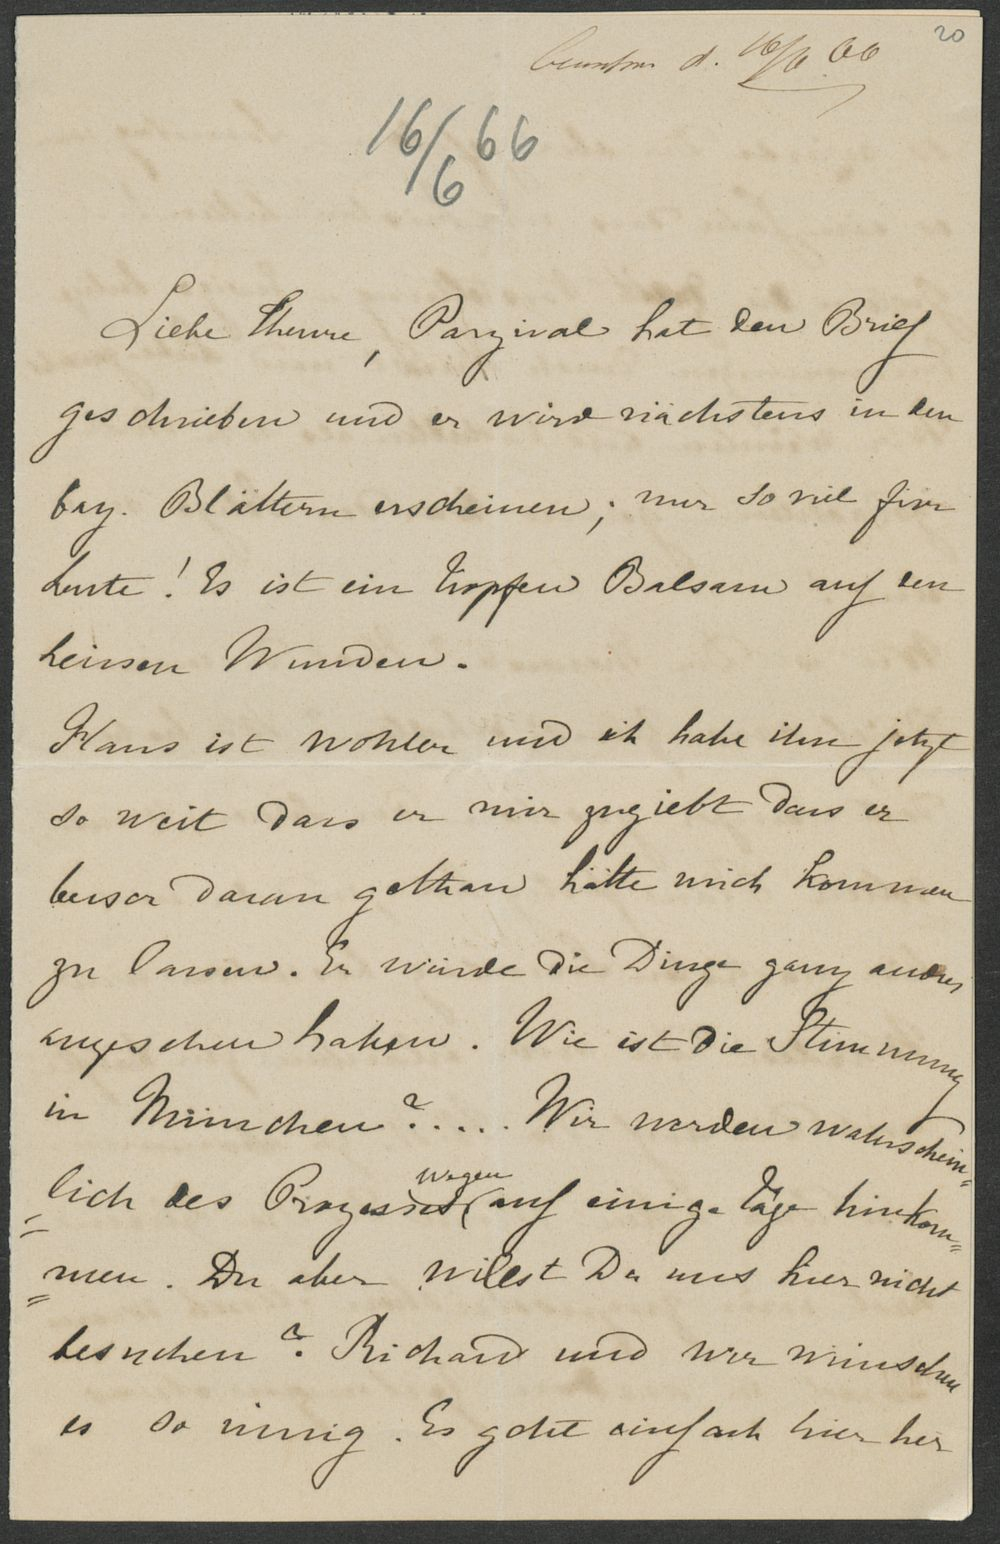 20
d. 16/6 66
16/6 66
Liebe Theure, Parzival hat den Brief
geschrieben und er wird nächstens in den
bay. Blättern erscheinen; nur so viel für
heute! Es ist ein Tropfen Balsam auf den
heissen Wunden.
Hans ist wohler und ich habe ihn jetzt
so weit dass er mir zugiebt dass er
besser daran gethan hätte mich kommen
zu lassen. Er würde die Dinge ganz anders
angesehen haben. Wie ist die Stimmung
in München?..... Wir werden wahrschein=
lich des Prozesses wegen auf einige Tage hinkom=
men. Du aber willst Du uns hier nicht
besuchen? Richard und wir wünschen
es so innig. Es geht einfach hier her